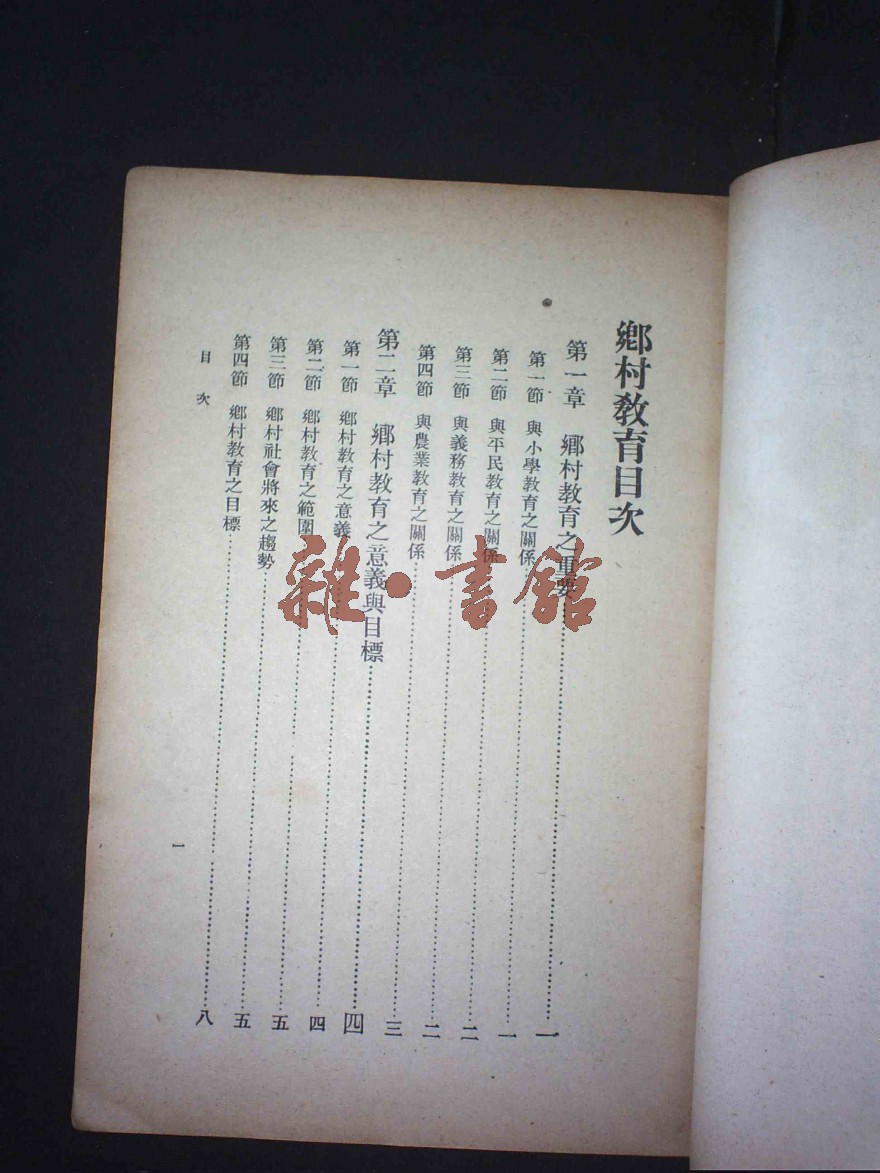 鄉村教育目次
第一章 鄉村教育之重要……一
第一節 與小學教育之關係……一
第二節 與平民教育之關係……二
第三節 與義務教育之關係……二
第四節 與農業教育之關係……三
第二章 鄉村教育之意義與目標……四
第一節 鄉村教育之意義……四
第二節 鄉村教育之範圍……五
第三節 鄉村社會將來之趨勢……五
第四節 鄉村教育之目標……八
目次
一
雜·書館